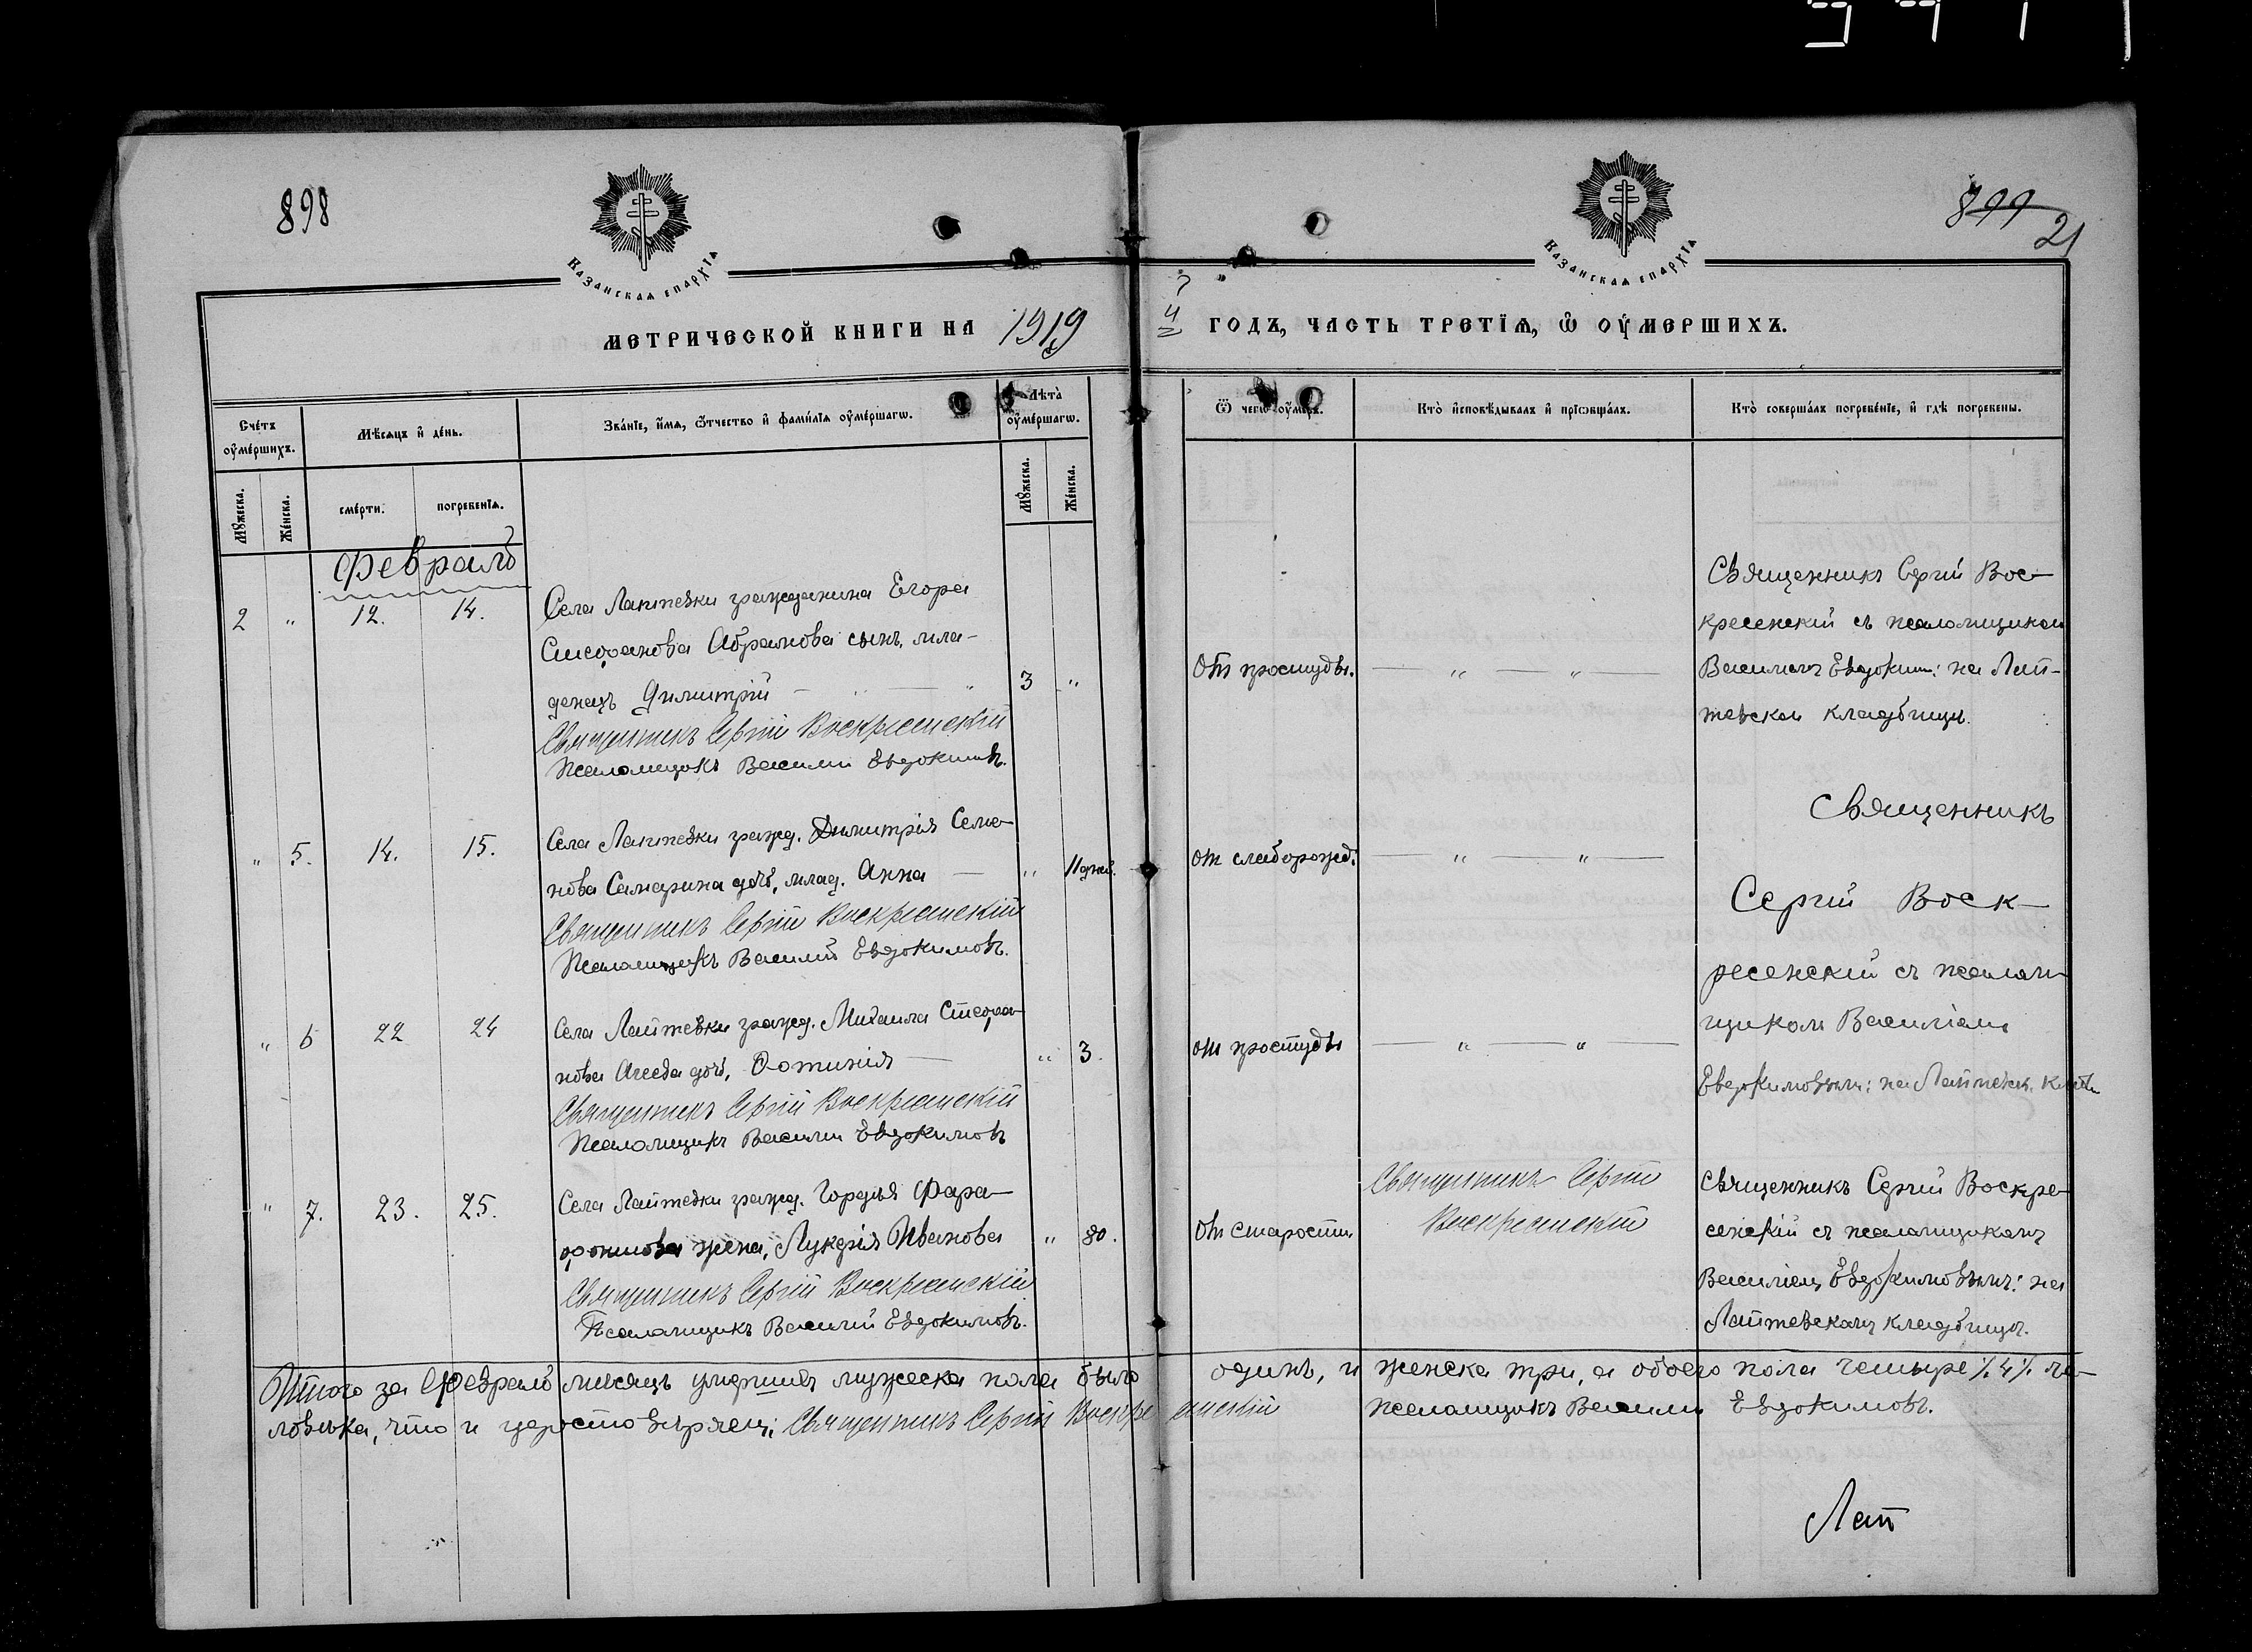 898
899
21
Казанская епархїѧ
Казанская епархїѧ
Метрической книги на 1919й годъ, часть третїѧ, ѿ оумершихъ.
Счетъ оумершихъ.
Мѣсяцъ и день.
Званїе, имѧ, ѿтчество и фамилїѧ оумершагѡ.
Лѣта оумершагѡ.
Ѿ чегѡ оумеръ.
Кто исповѣдывалъ и прїѡбщалъ.
Кто совершалъ погребенїе, и гдѣ погребены.
Мꙋжеска.
Женска.
смерти.
погребенїѧ.
Мꙋжеска.
Женска.
Февраль
2 " 12. 14.
Села Лаптевки гражданина Егора
Стефанова Абрамова сынъ, мла-
денецъ Димитрій — " — "
3 "
Священникъ Сергій Воскресенскій
Псаломщикъ Василій Евдокимовъ.
Отъ простуды.
— " — " —
Священникъ Сергій Вос-
кресенскій съ псаломщикомъ
Василіемъ Евдоким: на Лап-
тевском кладбищѣ.
" 5. 14. 15.
Села Лаптевки гражд. Димитрія Семе-
нова Самарина дочь, млад. Анна —
" 11 дней.
Священникъ Сергій Воскресенскій
Псаломщикъ Василій Евдокимовъ.
от слаборожд.
— " — " —
Священникъ
Сергій Воск-
ресенскій съ псалом-
щиком Василіем
Евдокимовымъ: на Лаптевск. кладб.
" 6 22 24
Села Лаптевки гражд. Михаила Стефа-
нова дочь, Фотинія —
" 3.
Священникъ Сергій Воскресенскій
Псаломщикъ Василій Евдокимовъ
от простуды
— " — " —
" 7. 23. 25.
Села Лаптевки гражд. Гордѣя Фара-
фонтова жена, Лукерія Иванова
" 80.
Священникъ Сергій Воскресенскій
Псаломщикъ Василій Евдокимовъ.
От старости.
Священникъ Сергій
Воскресенскій
Священникъ Сергій Воскре-
сенскій съ псаломщикомъ
Василіемъ Евдокимовымъ: на
Лаптевскомъ кладбищѣ.
Итого за Февраль мѣсяцъ умершихъ мужеска пола было одинъ, и женска три, а обоего пола четыре /. 4 /. че-
ловѣка, что и удостовѣряем: Священникъ Сергій Воскресенскій Псаломщикъ Василій Евдокимовъ.
Лап